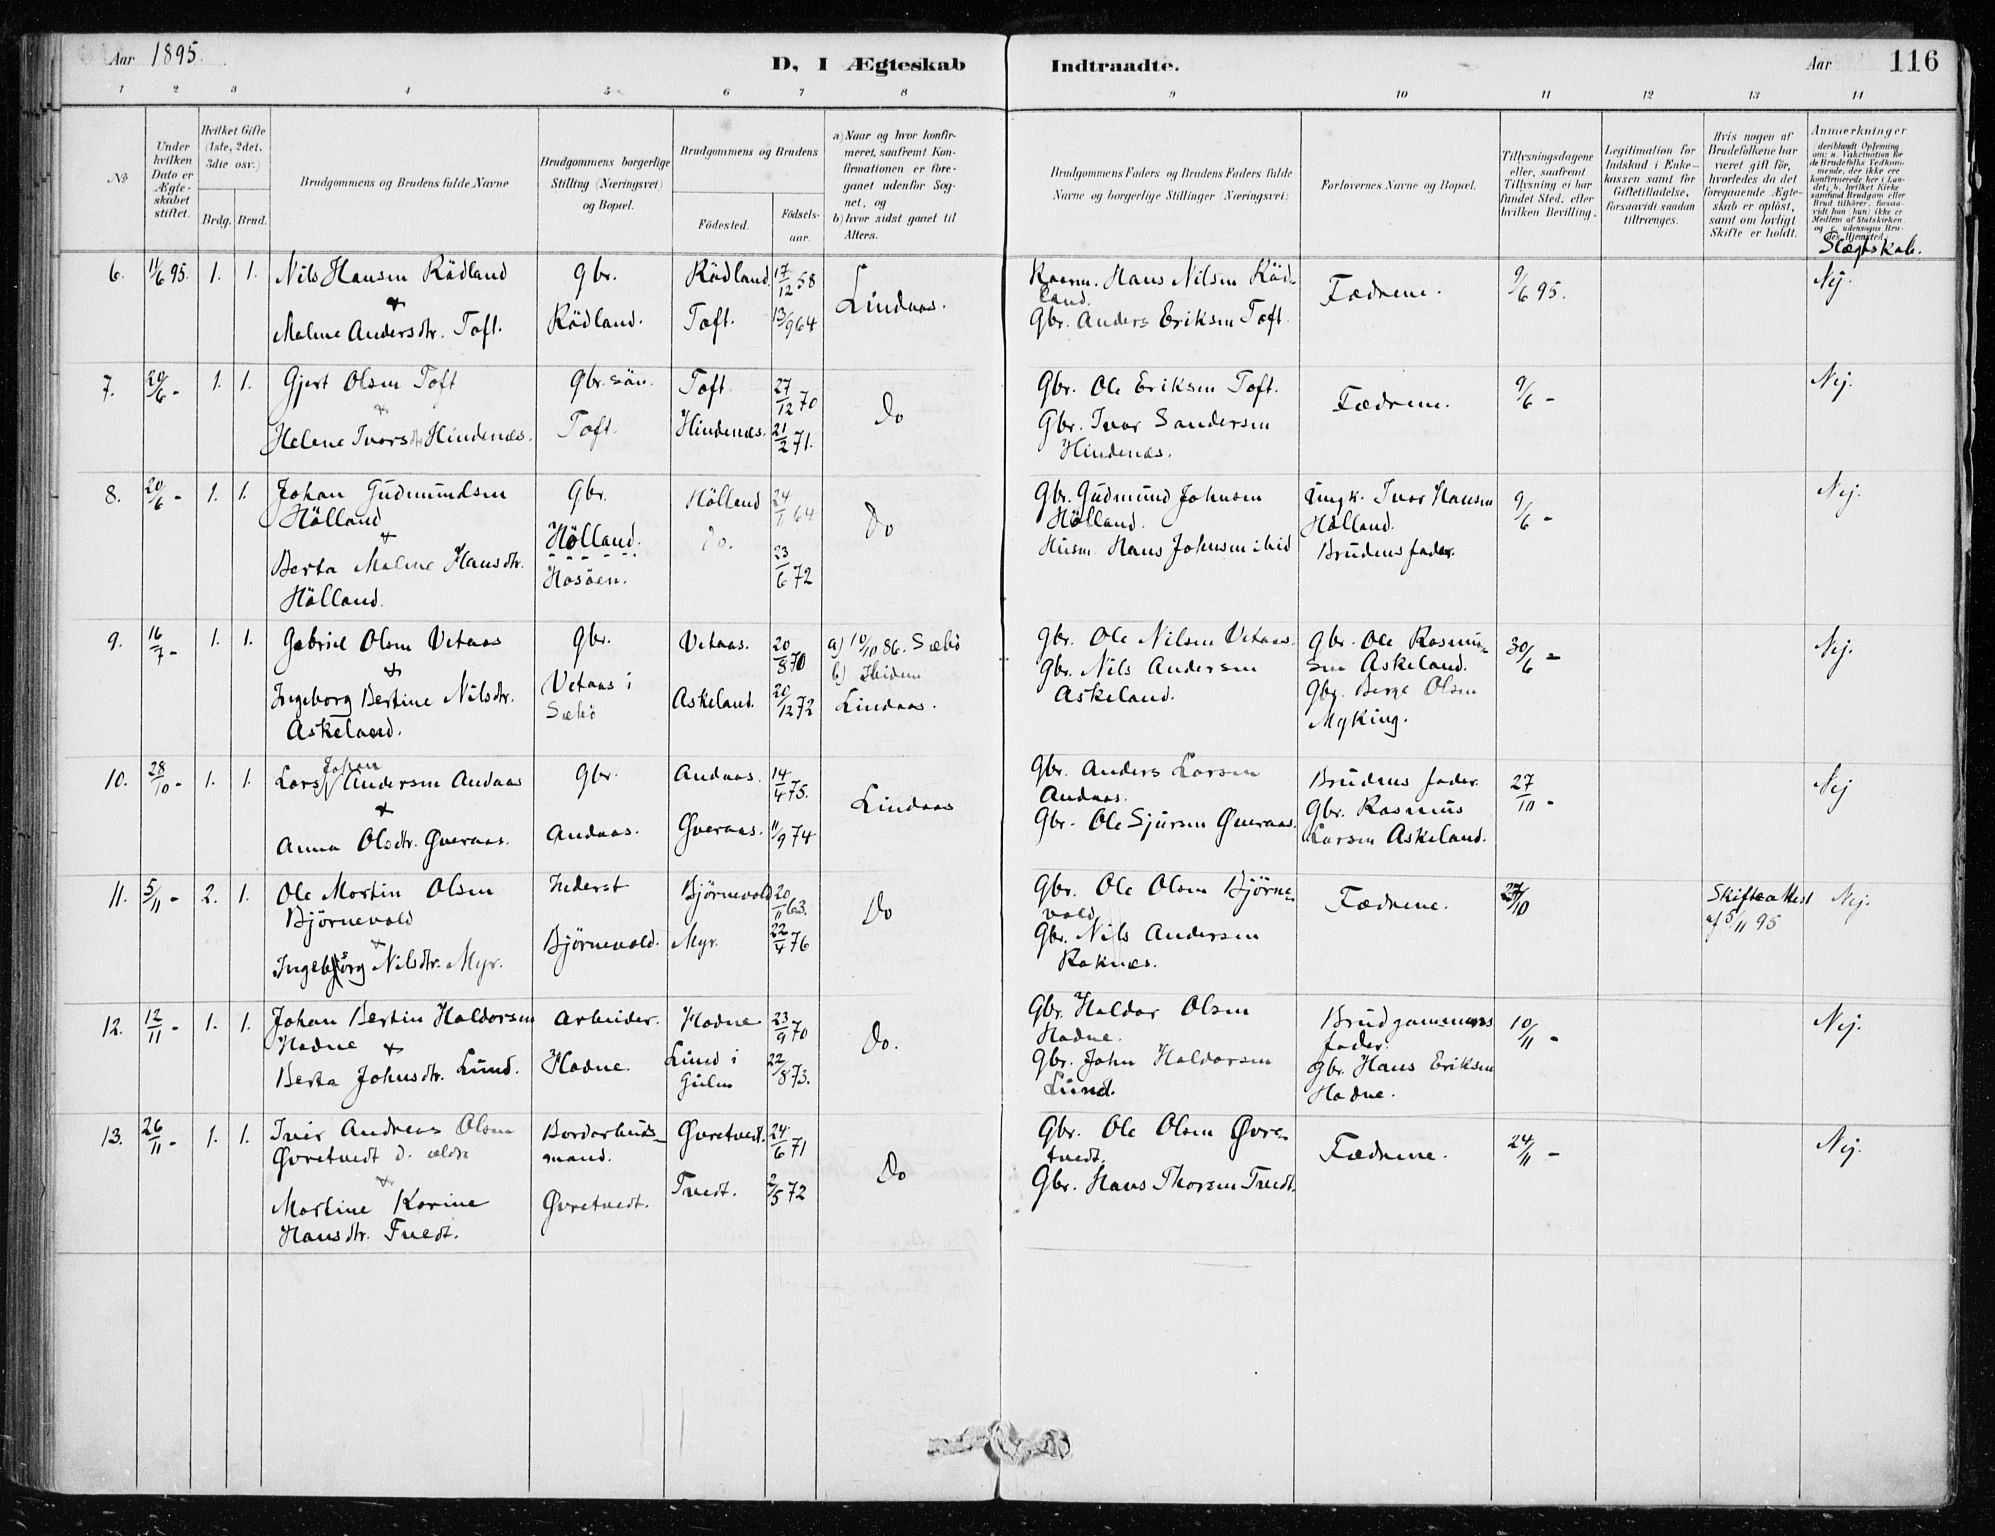 Aar 1895.
D, I Ægteskab Indtraadte.
Aar 116
1 2 3 4 5 6 7 8 9 10 11 12 13 14
No
Under hvilken Dato er Ægteskabet stiftet.
Hvilket Gifte (1ste, 2det, 3die osv.)
Brdg. Brud.
Brudgommens og Brudens fulde Navne
Brudgommens borgerlige Stilling (Næringsvei) og Bopæl.
Brudgommens og Brudens
Födested.
Födsels-aar.
a) Naar og hvor konfir-
meret, saafremt Kon-
firmationen er fore-
gaaet udenfor Sog-
net, og
b) hvor sidst gaaet til
Alters.
Brudgommens Faders og Brudens Faders fulde
Navne og borgerlige Stillinger (Næringsvei)
Forlovernes Navne og Bopæl.
Tillysningsdagene
eller, saafremt
Tillysning ei har
fundet Sted, efter
hvilken Bevilling.
Legitimation for
Indskud i Enke-
kassen samt for
Giftetilladelse,
forsaavidt saadan
tiltrænges.
Hvis nogen af
Brudefolkene har
været gift før,
hvorledes da det
foregaaende Ægte-
skab er opløst,
samt om lovligt
Skifte er holdt.
Anmærkninger
Slægtskab.
6. 11/6 95. 1. 1. Nils Hansen Rödland
&
Malene Andersdtr. Toft.
Gbr.
Rödland.
Rödland. 17/12 58
Toft. 13/9 64
Lindaas.
Kaarm. Hans Nilsen Röd-
land.
Gbr. Anders Eriksen Toft.
Fædrene. 9/6 95. Nej.
7. 20/6 - 1. 1. Gjert Olsen Toft
&
Helene Ivarsdtr Hindenæs.
Gbr. sön.
Toft.
Toft. 27/12 70
Hindenæs. 21/2 71.
Do
Gbr. Ole Eriksen Toft.
Gbr. Ivar Sandersen
Hindenæs.
Fædrene. 9/6 - Nej.
8. 20/6 - 1. 1. Johan Gudmundsen
Hölland
&
Berta Malene Hansdtr.
Hölland.
Gbr.
Hölland.
Hosöen.
Hölland 24/1 64
do. 23/6 72
Do
Gbr. Gudmund Johnsen
Hölland.
Husm. Hans Johnsen ibid
Ungk. Ivar Hansen
Hölland.
Brudens fader.
9/6 - Nej.
9. 16/7 - 1. 1. Gabriel Olsen Vetaas
&
Ingeborg Bertine Nilsdtr.
Askeland.
Gbr.
Vetaas i
Sæbö
Vetaas. 20/8 70
Askeland. 20/12 72
a) 10/10 86. Sæbö
b) Ibidem
Lindaas.
Gbr. Ole Nilsen Vetaas.
Gbr. Nils Andersen
Askeland.
Gbr. Ole Rasmus-
sen Askeland.
Gbr. Berge Olsen
Myking.
30/6 - Nej.
10. 28/10 - 1. 1. Lars Johan Andersen Andaas
&
Anna Olsdtr. Qveraas.
Gbr.
Andaas.
Andaas. 14/4 75.
Qveraas. 11/9 74
Lindaas
Gbr. Anders Larsen
Andaas.
Gbr. Ole Sjursen Qveraas.
Brudens fader.
Gbr. Rasmus
Larsen Askeland.
27/10 - Nej
11. 5/11 - 2. 1. Ole Martin Olsen
Björnevold
&
Ingeborg Nilsdtr. Myr.
Inderst
Björnevold.
Björnevold 20/11 63.
Myr. 22/4 76
Do
Gbr. Ole Olsen Björne-
vold
Gbr. Nils Andersen
Raknæs.
Fædrene. 27/10
Skifteattest
af 5/11 95
Nej.
12. 12/11 - 1. 1. Johan Bertin Haldorsen
Hodne &
Berta Johnsdtr. Lund.
Arbeider.
Hodne.
Hodne 23/9 70
Lund i
Gulen 22/8 73.
Do.
Gbr. Haldor Olsen
Hodne.
Gbr. John Haldorsen
Lund.
Brudgommens
fader.
Gbr. Hans Eriksen
Hodne.
10/11 - Nej.
13. 26/11 - 1. 1. Iver Andreas Olsen
Øvretvedt d. ældre
&
Martine Karine
Hansdtr. Tvedt.
Bordarbeids-
mand.
Øvretvedt.
Øvretvedt. 24/6 71
Tvedt. 2/5 72
Do
Gbr. Ole Olsen Øvre-
tvedt.
Gbr. Hans Thorsen Tvedt.
Fædrene. 24/11 - Nej.